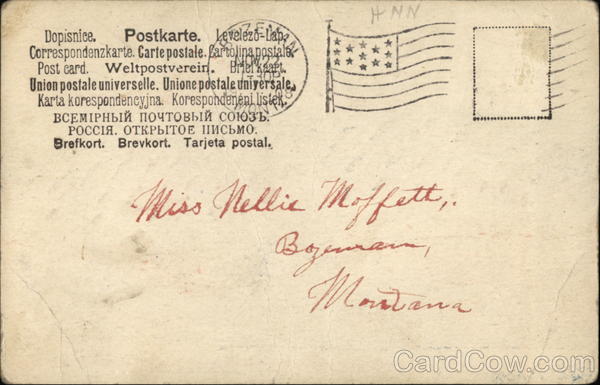 HNN
Dopisnice. Postkarte. Levelező-Lap.
Correspondenzkarte. Carte postale. Cartolina postale.
Post card. Weltpostverein. Briefkaart.
Union postale universelle. Unione postale universale.
Karta korespondencyjna. Korespondenčni listek.
ВСЕМІРНЫЙ ПОЧТОВЫЙ СОЮЗЪ.
РОССІЯ. ОТКРЫТОЕ ПИСЬМО.
Brefkort. Brevkort. Tarjeta postal.
BOZEMAN
NOV 22
MONT.
Miss Nellie Moffett,.
Bozeman,
Montana
CardCow.com